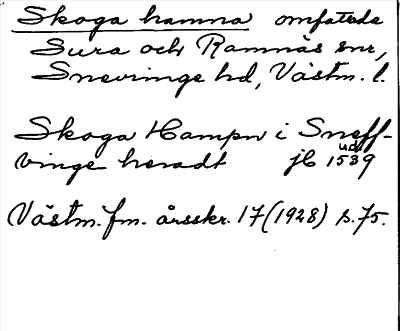 Skoga hamna omfattade
Sura och Ramnäs snr,
Snevringe hd, Västm. l.
Skoga Hampn i Sneff-
vinge heradt jb 1539
ud
Västm. fm. årsskr. 17 (1928) s. 75.